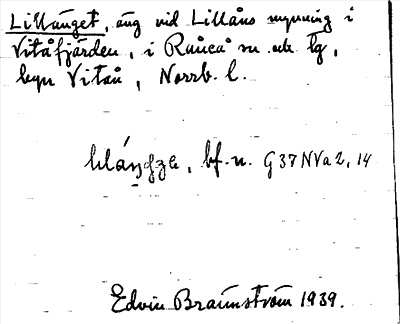 Lillänget, äng vid Lillåns mynning i
Vitåfjärden, i Råneå sn och tg,
byn Vitån, Norrb. l.
bf. n. G 37 NVa 2, 14
Edvin Brännström 1939.